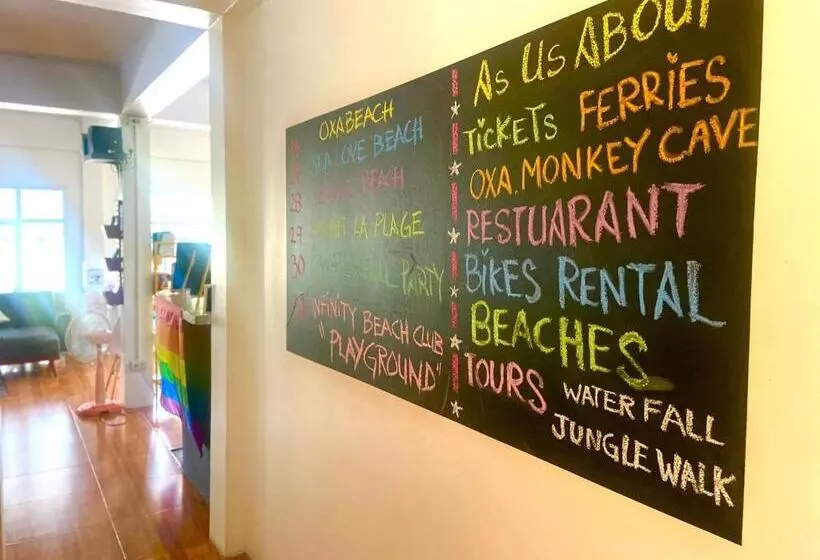 OXABEACH
SEA LOVE BEACH
BEACH
28
29 LA PLAGE
30 PARTY
INFINITY BEACH CLUB
"PLAYGROUND"
AS US ABOUT
TICKETS FERRIES
OXA. MONKEY CAVE
RESTUARANT
BIKES RENTAL
BEACHES
TOURS WATER FALL
JUNGLE WALK